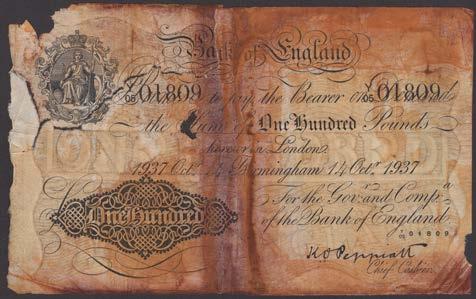 Bank of England
Y/05 01809 to pay the Bearer on Demand Y/05 01809
the Sum of One Hundred Pounds
here or in London
1937 Octr. 14 Birmingham 14 Octr. 1937
For the Govr. and Compa.
of the Bank of England
Y/05 01809
One Hundred
K O Peppiatt
Chief Cashier